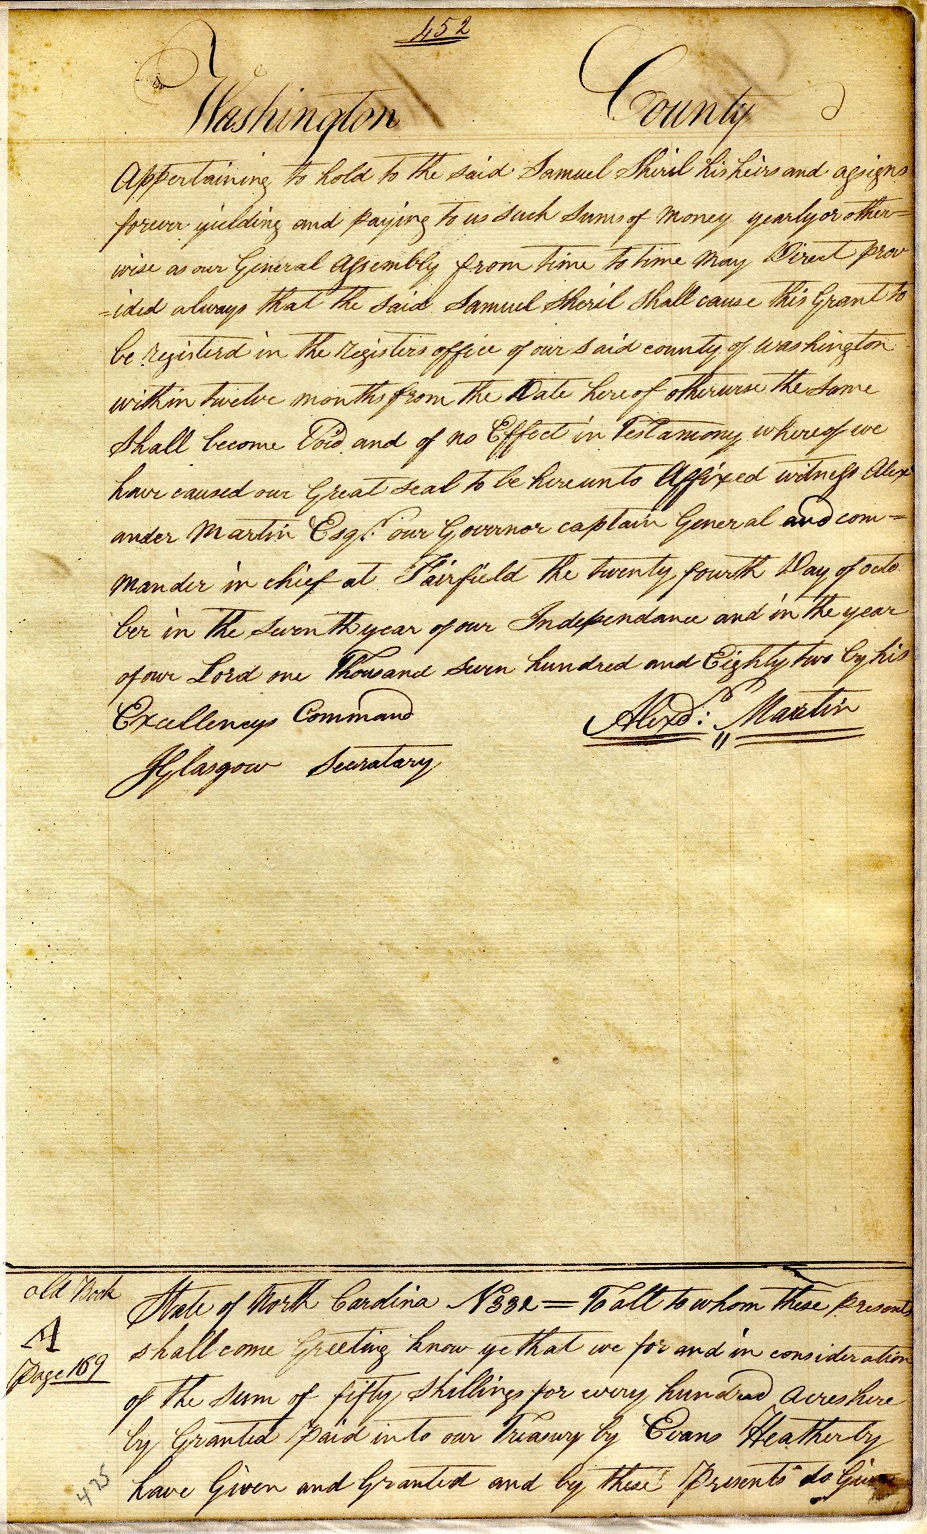 452
Washington County
Appertaining to hold to the said Samuel Sheril his heirs and assigns
forever yielding and paying to us such sums of money yearly or other=
wise as our General Assembly from time to time may Direct prov
=ided always that the said Samuel Sheril shall cause this Grant to
be registerd in the registers office of our said county of washington
within twelve months from the Date hereof otherwise the same
Shall become Void and of no Effect in Testamony whereof we
have caused our Great seal to be hereunto Affixed witness Alex
ander Martin Esqr. our Governor captain General and com=
mander in chief at Fairfield the twenty fourth Day of octo
ber in the seventh year of our Independance and in the year
of our Lord one Thousand seven hundred and Eighty two by his
Excellencys Command Alexd: Martin
JGlasgow Secratary
old Book
A
Page 169
State of North Carolina No 332 = To all to whom these presents
shall come Greeting know ye that we for and in consideration
of the sum of fifty shillings for every hundred acres here
by Granted paid into our Treasury by Evans Heatherly
have Given and Granted and by these presents do Give
475